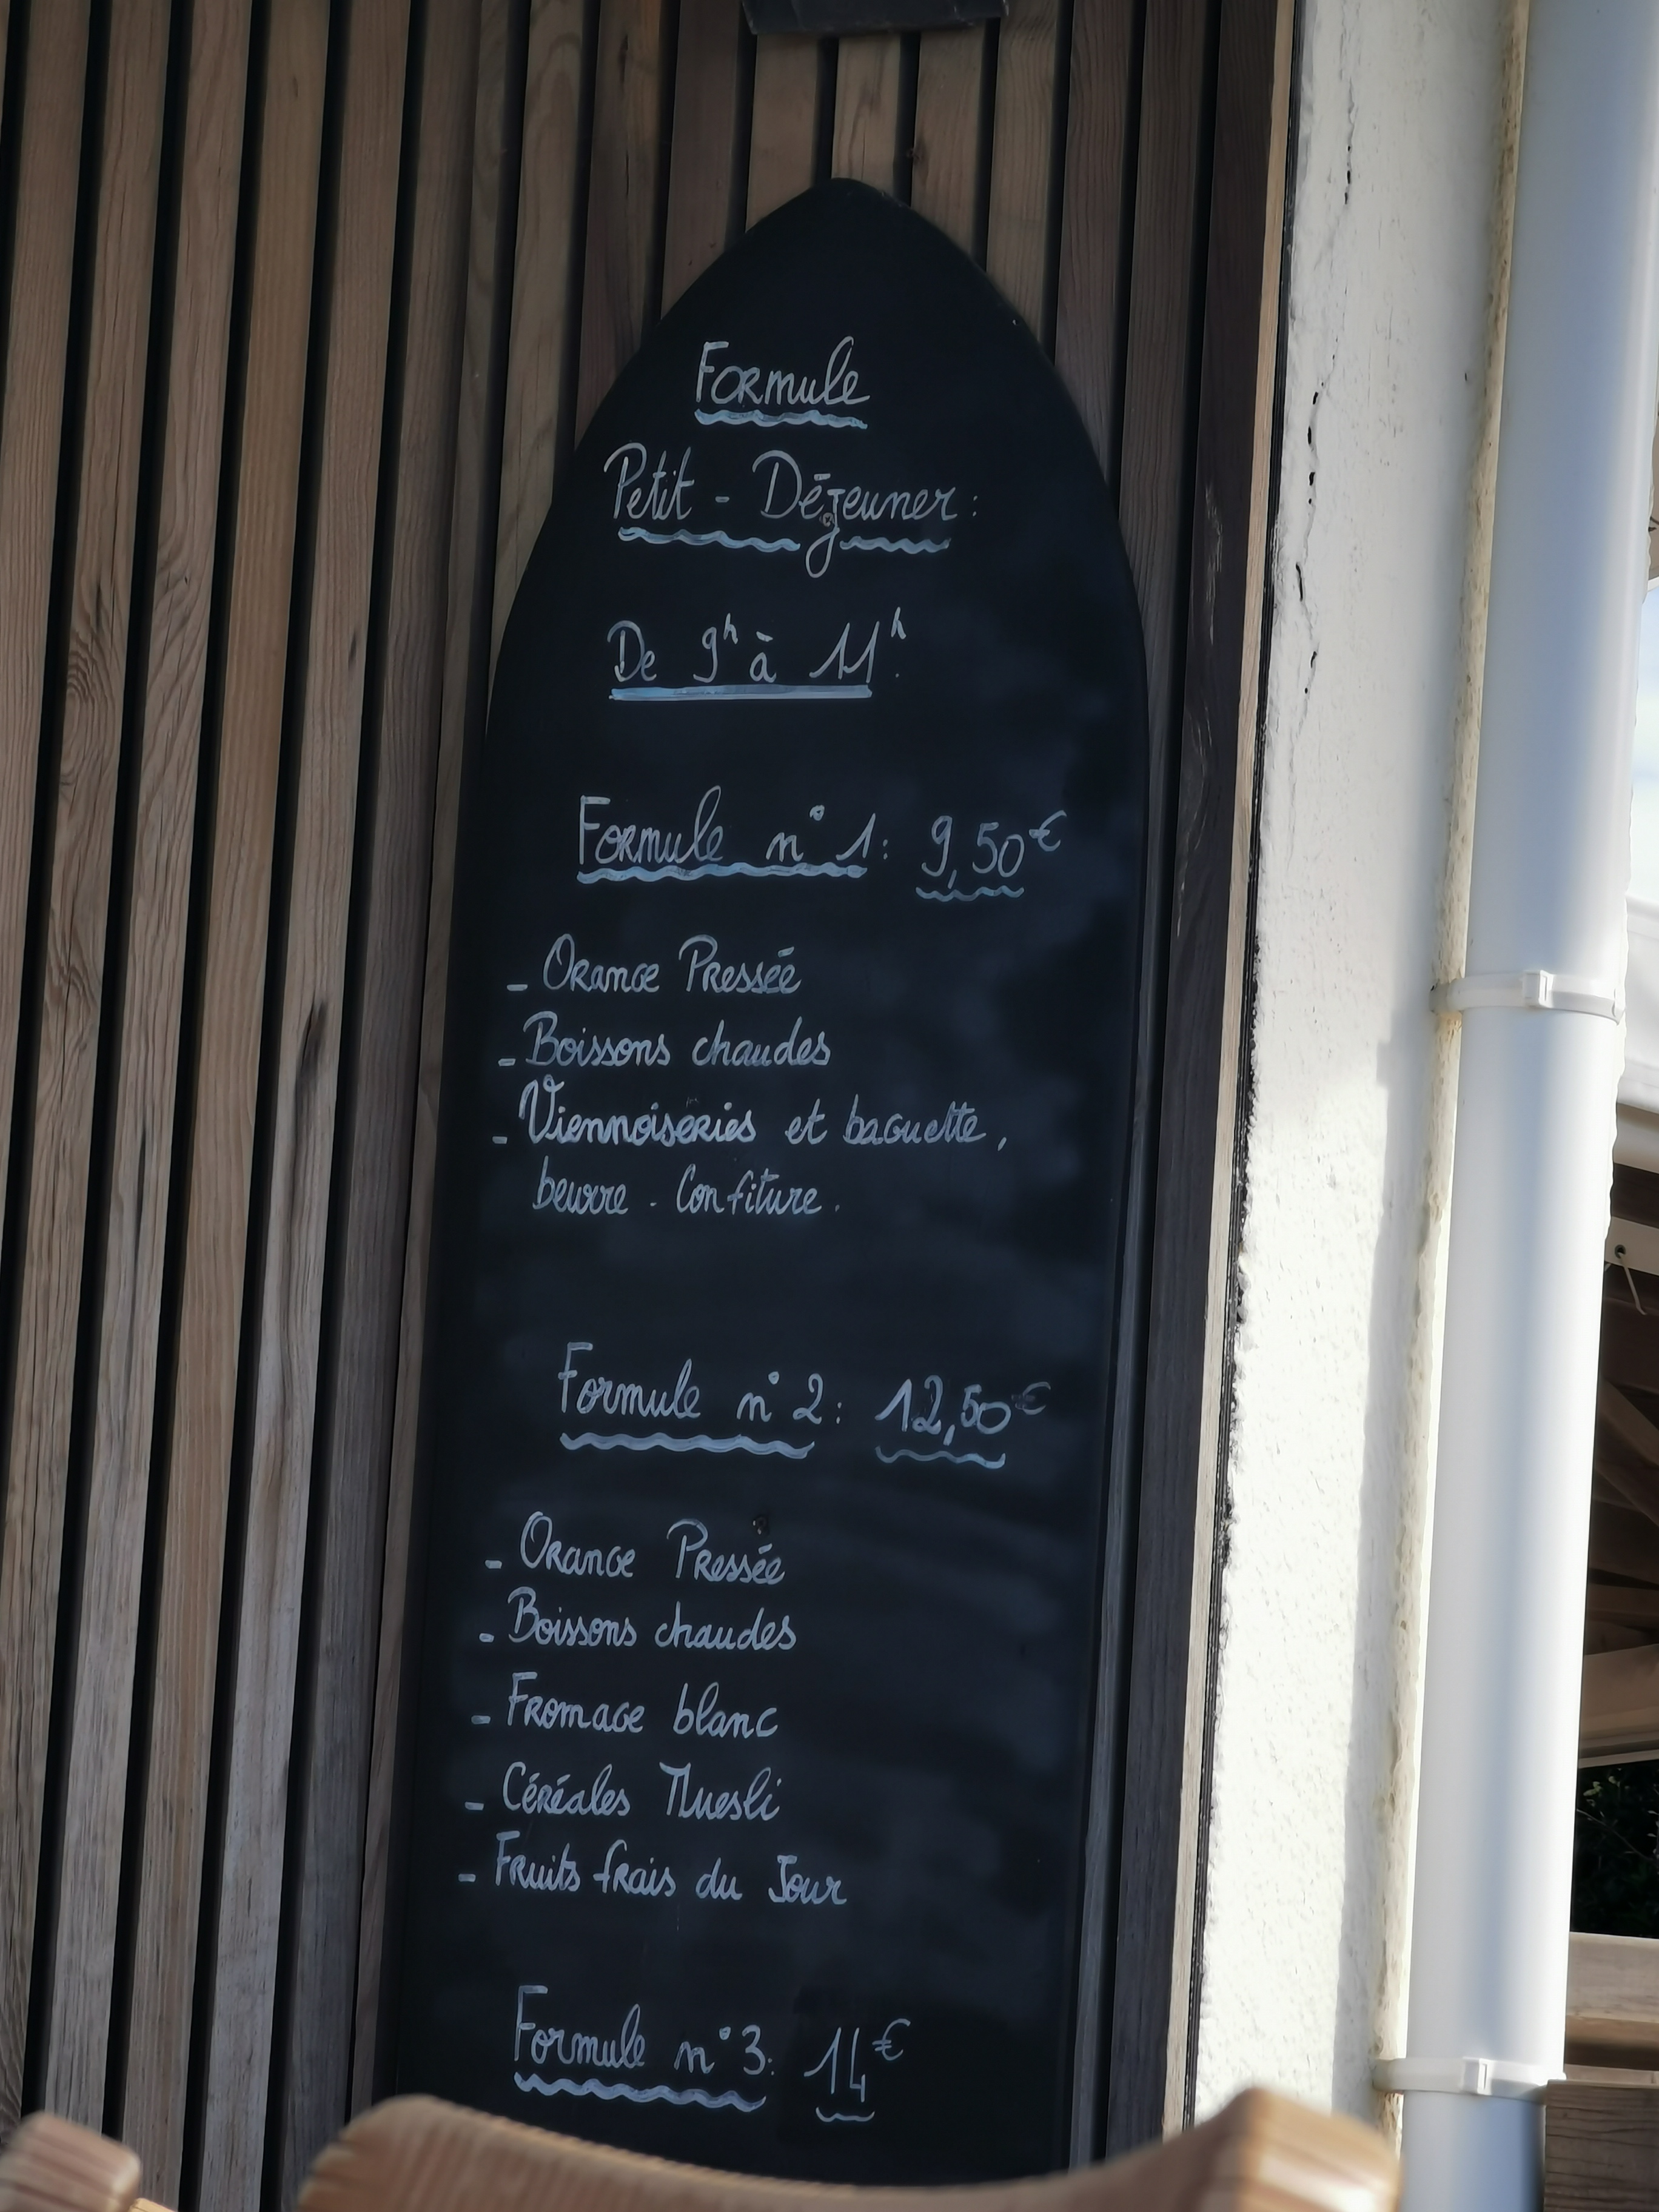 Formule
Petit - Déjeuner :
De 9h à 11h.
Formule n° 1 : 9,50€
- Orange Pressée
- Boissons chaudes
- Viennoiseries et baguette,
beurre - Confiture.
Formule n° 2 : 12,50€
- Orange Pressée
- Boissons chaudes
- Fromage blanc
- Céréales Muesli
- Fruits frais du Jour
Formule n° 3 : 14€